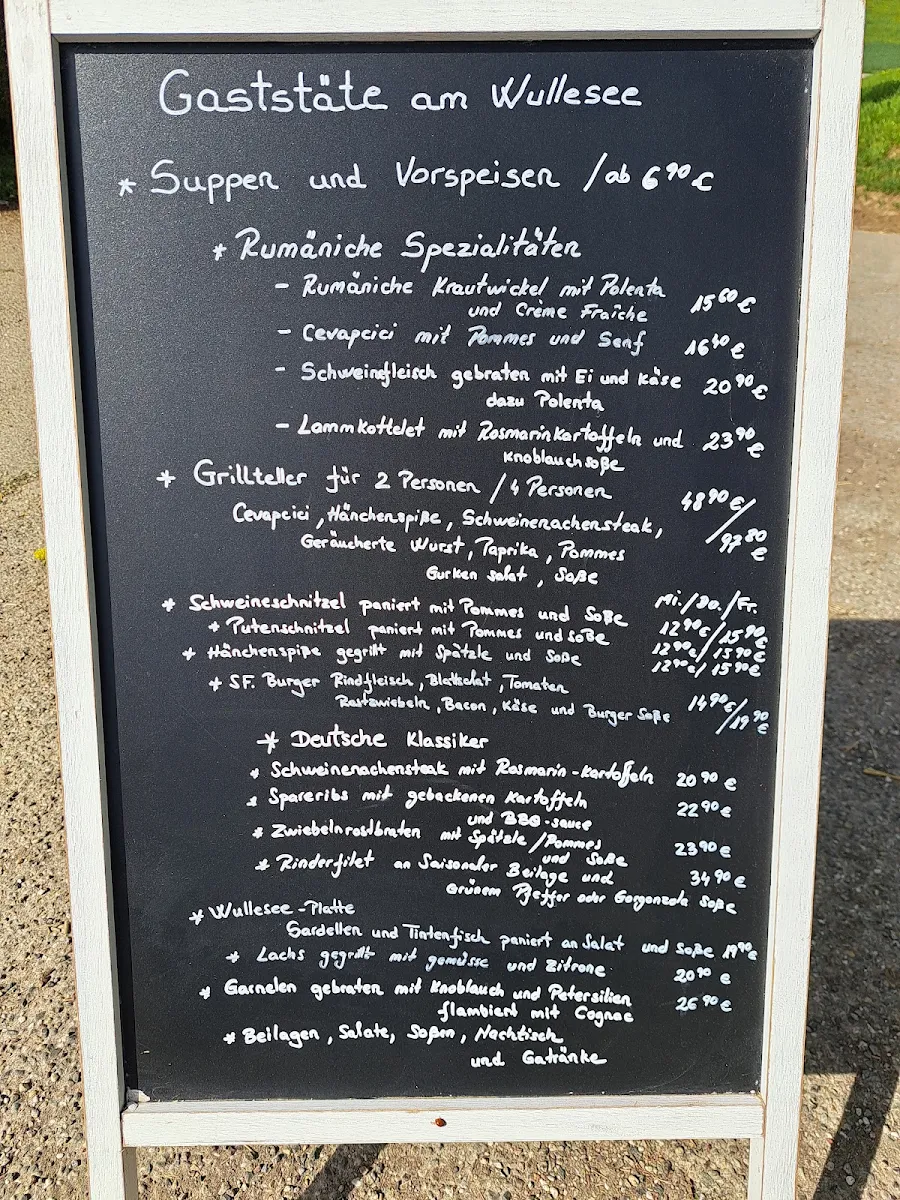 Gaststäte am Wullesee
* Suppen und Vorspeisen / ab 6⁹⁰ €
* Rumäniche Spezialitäten
- Rumäniche Krautwickel mit Polenta
und Crème Fraîche 15⁶⁰ €
- Cevapcici mit Pommes und Senf 16⁴⁰ €
- Schweinefleisch gebraten mit Ei und Käse 20⁹⁰ €
dazu Polenta
- Lammkottelet mit Rosmarinkartoffeln und 23⁹⁰ €
Knoblauchsoße
* Grillteller für 2 Personen / 4 Personen 48⁹⁰ €/
Cevapcici, Hänchenspiße, Schweinenachensteak, 97⁸⁰ €
Geräucherte Wurst, Paprika, Pommes
Gurken salat, Soße
Mi./Do./Fr.
* Schweineschnitzel paniert mit Pommes und Soße 12⁹⁰€/15⁹⁰€
* Putenschnitzel paniert mit Pommes und Soße 12⁹⁰€/15⁹⁰€
* Hänchenspiße gegrillt mit Spätzle und Soße 12⁹⁰€/15⁹⁰€
* SF. Burger Rindfleisch, Blattsalat, Tomaten
Rostzwiebeln, Bacon, Käse und Burger Soße 14⁹⁰€/19⁹⁰€
* Deutsche Klassiker
* Schweinenachensteak mit Rosmarin-Kartoffeln 20⁹⁰ €
* Spareribs mit gebackenen Kartoffeln 22⁹⁰ €
und BBQ-sauce
* Zwiebelnrostbraten mit Spätzle/Pommes 23⁹⁰ €
und Soße
* Rinderfilet an Saisonaler Beilage und 34⁹⁰ €
Grünem Pfeffer oder Gorgonzola Soße
* Wullesee-Platte
Sardellen und Tintenfisch paniert an Salat und Soße 19⁹⁰€
* Lachs gegrillt mit gemüsse und Zitrone 20⁹⁰ €
* Garnelen gebraten mit Knoblauch und Petersilien 26⁹⁰ €
flambiert mit Cognac
* Beilagen, Salate, Soßen, Nachtisch
und Getränke